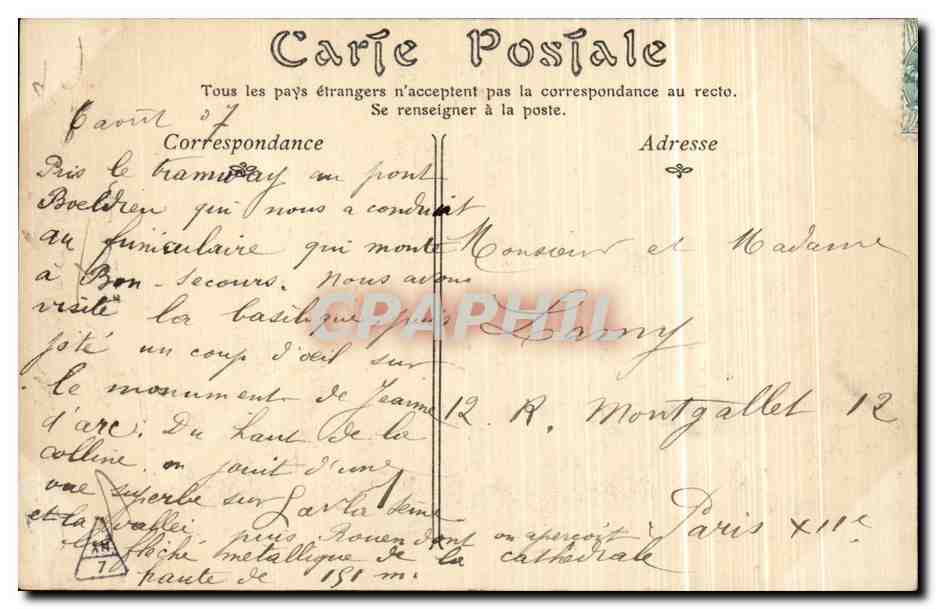 Carte Postale
Tous les pays étrangers n'acceptent pas la correspondance au recto.
Se renseigner à la poste.
Correspondance
6 août 07
Pris le tramway au pont
Boeldieu qui nous a conduit
au funiculaire qui monte
à Bon-secours. Nous avons
visité la basilique puis
jeté un coup d'œil sur
le monument de Jeanne
d'arc. Du haut de la
colline on jouit d'une
vue superbe sur la Seine
et la vallée puis Rouen dont on aperçoit
flèche métallique de la cathédrale
haute de 151 m.
Adresse
Monsieur et Madame
Lamy
12 R. Montgallet 12
Paris XIIe
CPAPHIL
7